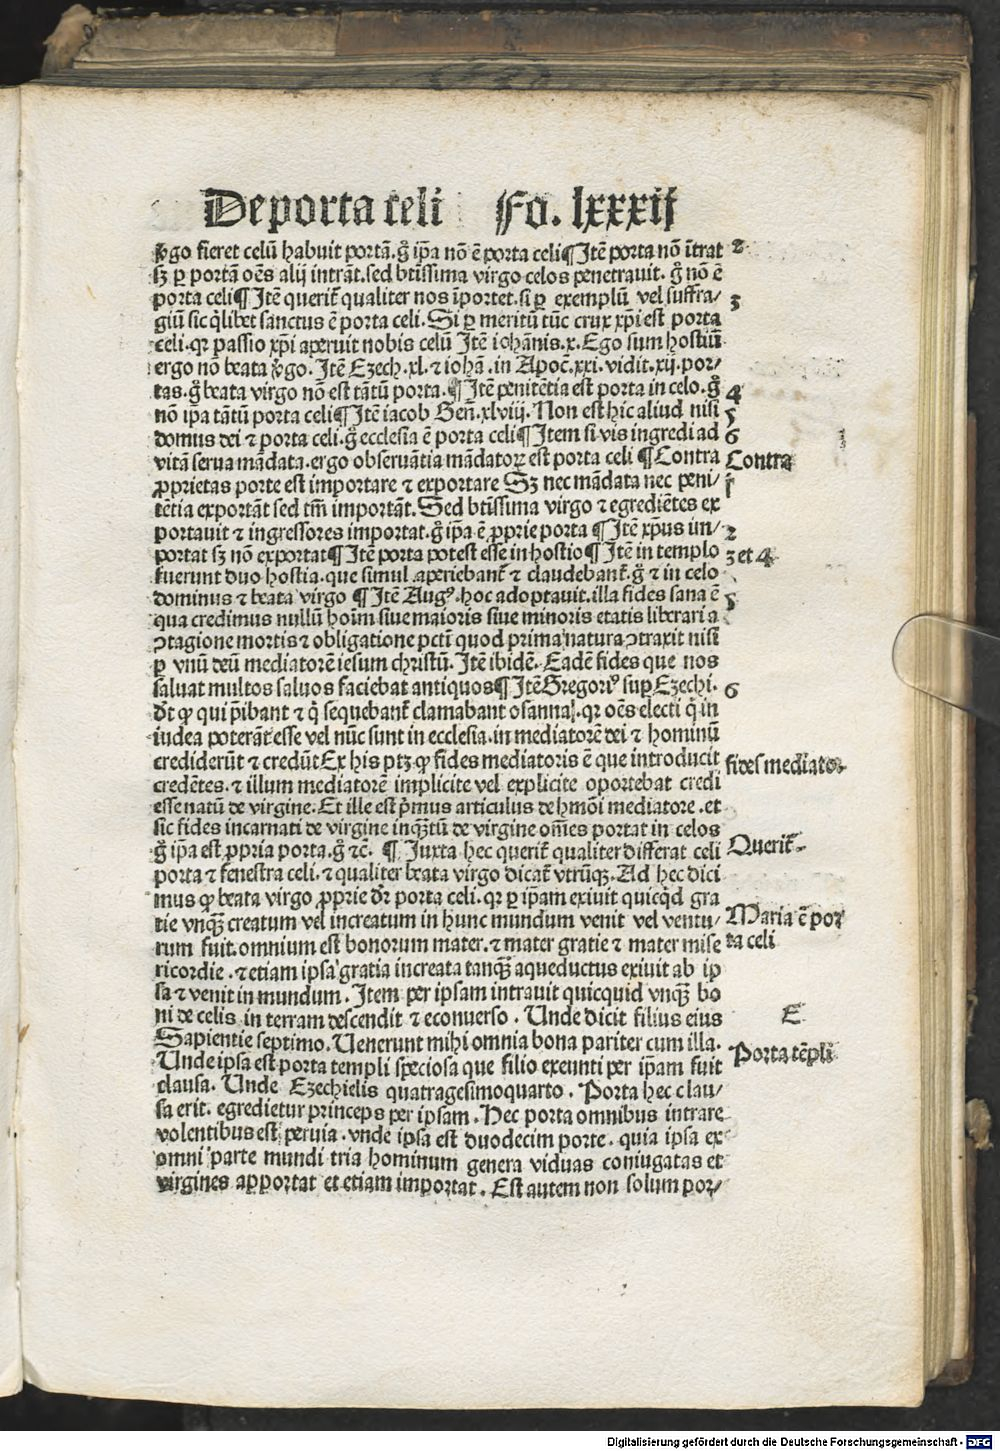 De porta celi Fo. lxxxij
v̾go fieret celū habuit portā. g̊ ip̄a nō ē porta celi ¶ Itē porta nō ītrat 2
sꝫ ꝑ portā oēs alij intrāt. sed btissima virgo celos penetrauit. g̊ nō ē
porta celi ¶ Itē querit̄ qualiter nos īportet. si ꝑ exemplū vel suffra/ 3
giū sic q̄libet sanctus ē porta celi. Si ꝑ meritū tūc crux xp̄i est porta
celi. qr passio xp̄i aperuit nobis celū Itē iohānis. x. Ego sum hostiū
ergo nō beata v̾go. Itē Ezech. xl. ⁊ iohā. in Apoc̄. xxi. vidit. xij. por/
tas. g̊ beata virgo nō est tātū porta. ¶ Itē penitētia est porta in celo. g̊ 4
nō ipa tātū porta celi ¶ Itē iacob Geñ. xlviij. Non est hic aliud nisi 5
domus dei ⁊ porta celi. g̊ ecclesia ē porta celi ¶ Item si vis ingredi ad 6
vitā serua mādata. ergo obseruātia mādatoꝝ est porta celi ¶ Contra Contra
ꝓprietas porte est importare ⁊ exportare Sꝫ nec mādata nec peni/ i
tētia exportāt sed tm̄ importāt. Sed btissima virgo ⁊ egrediētes ex
portauit ⁊ ingressores importat. g̊ ip̄a ē ꝓprie porta ¶ Itē xp̄us im/ 2
portat sꝫ nō exportat ¶ Itē porta potest esse in hostio ¶ Itē in templo 3 et 4
fuerunt duo hostia. que simul aperiebant̄ ⁊ claudebant̄. g̊ ⁊ in celo
dominus ⁊ beata virgo ¶ Itē Augꝰ. hoc adoptauit. illa fides sana ē 5
qua credimus nullū hoīm siue maioris siue minoris etatis liberari a
ↄtagione mortis ⁊ obligatione pctī quod prima natura ↄtraxit nisi
ꝑ vnū deū mediatorē iesum christū. Itē ibidē. Eadē fides que nos
saluat multos saluos faciebat antiquos ¶ Itē Gregoriꝰ suꝑ Ezechi. 6
dt̄ ꝙ qui p̄ibant ⁊ q̄ sequebant̄ clamabant osanna. qr oēs electi q̄ in
iudea poterāt esse vel nūc sunt in ecclesia. in mediatorē dei ⁊ hominū
crediderūt ⁊ credūt Ex his ptꝫ ꝙ fides mediatoris ē que introducit fides mediatoꝝ
credētes. ⁊ illum mediatorē implicite vel explicite oportebat credi
esse natū de virgine. Et ille est p̄mus articulus de hmōi mediatore. et
sic fides incarnati de virgine inqꝫtū de virgine om̄es portat in celos
g̊ ip̄a est ꝓpria porta. g̊ ⁊c̄. ¶ Iuxta hec querit̄ qualiter differat celi Querit̄
porta ⁊ fenestra celi. ⁊ qualiter beata virgo dicat̄ vtrūqꝫ. Ad hec dici
mus ꝙ beata virgo ꝓprie dr̄ porta celi. qr ꝑ ip̄am exiuit quicq̄d gra
tie vnqꝫ creatum vel increatum in hunc mundum venit vel ventu/ Maria ē por
rum fuit. omnium est bonorum mater. ⁊ mater gratie ⁊ mater mise ta celi
ricordie. ⁊ etiam ipsa gratia increata tanqꝫ aqueductus exiuit ab ip
sa ⁊ venit in mundum. Item per ipsam intrauit quicquid vnqꝫ bo
ni de celis in terram descendit ⁊ econuerso. Unde dicit filius eius E
Sapientie septimo. Uenerunt mihi omnia bona pariter cum illa.
Unde ipsa est porta templi speciosa que filio exeunti per ip̄am fuit Porta tēpli
clausa. Unde Ezechielis quatragesimoquarto. Porta hec clau/
sa erit. egredietur princeps per ipsam. Hec porta omnibus intrare
volentibus est peruia. vnde ipsa est duodecim porte. quia ipsa ex
omni parte mundi tria hominum genera viduas coniugatas et
virgines apportat et etiam importat. Est autem non solum por/
Digitalisierung gefördert durch die Deutsche Forschungsgemeinschaft - DFG